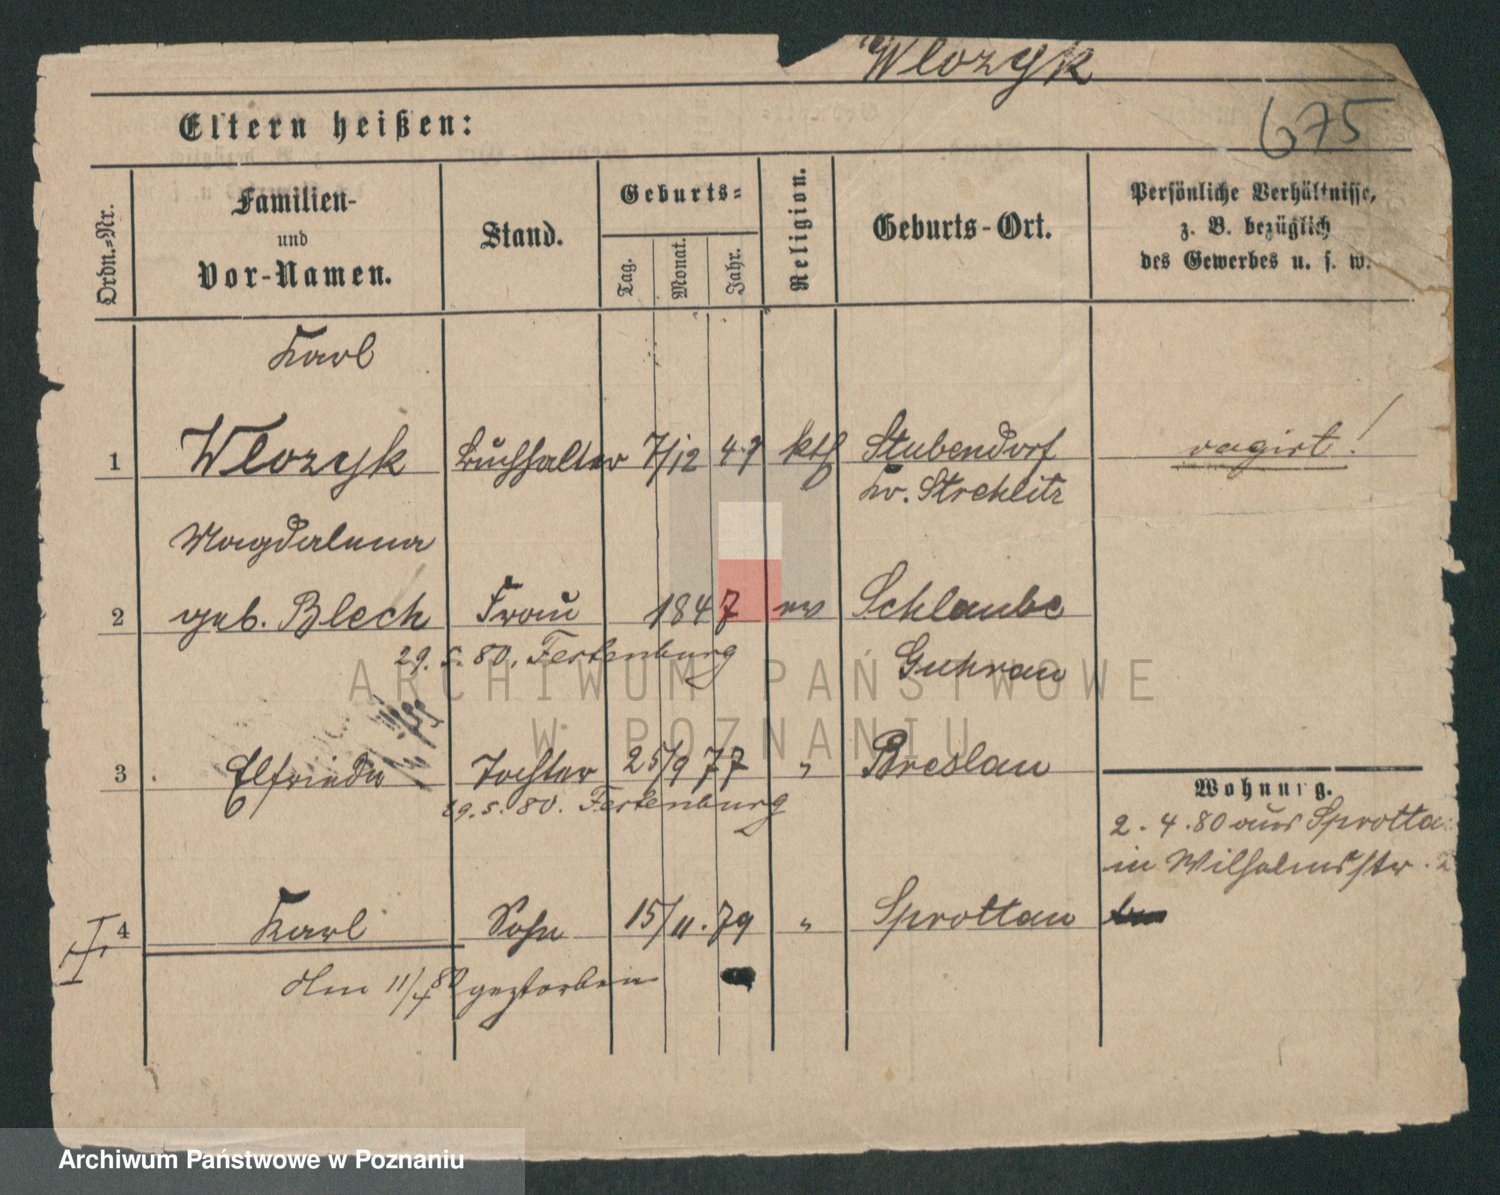 Wlozyk
675
Eltern heißen:
Ordn.=Nr.
Familien-
und
Vor-Namen.
Stand.
Geburts=
Tag.
Monat.
Jahr.
Religion.
Geburts-Ort.
Persönliche Verhältnisse,
z. B. bezüglich
des Gewerbes u. s. w.
Karl
1 Wlozyk Buchhalter 7/12 47 kth Stubendorf
Kr. Strehlitz
Magdalena
2 geb. Blech Frau 1847 ev Schlaube
29.5.80. Festenburg Guhrau
3 Elfriede Tochter 25/9 77 " Breslau
29.5.80. Festenburg
Wohnung.
2.4.80 aus Sprotta
in Wilhelmstr. 2
4 Karl Sohn 15/11.79 " Sprottau
Am 11/4 80 gestorben
ARCHIWUM PAŃSTWOWE
W POZNANIU
Archiwum Państwowe w Poznaniu